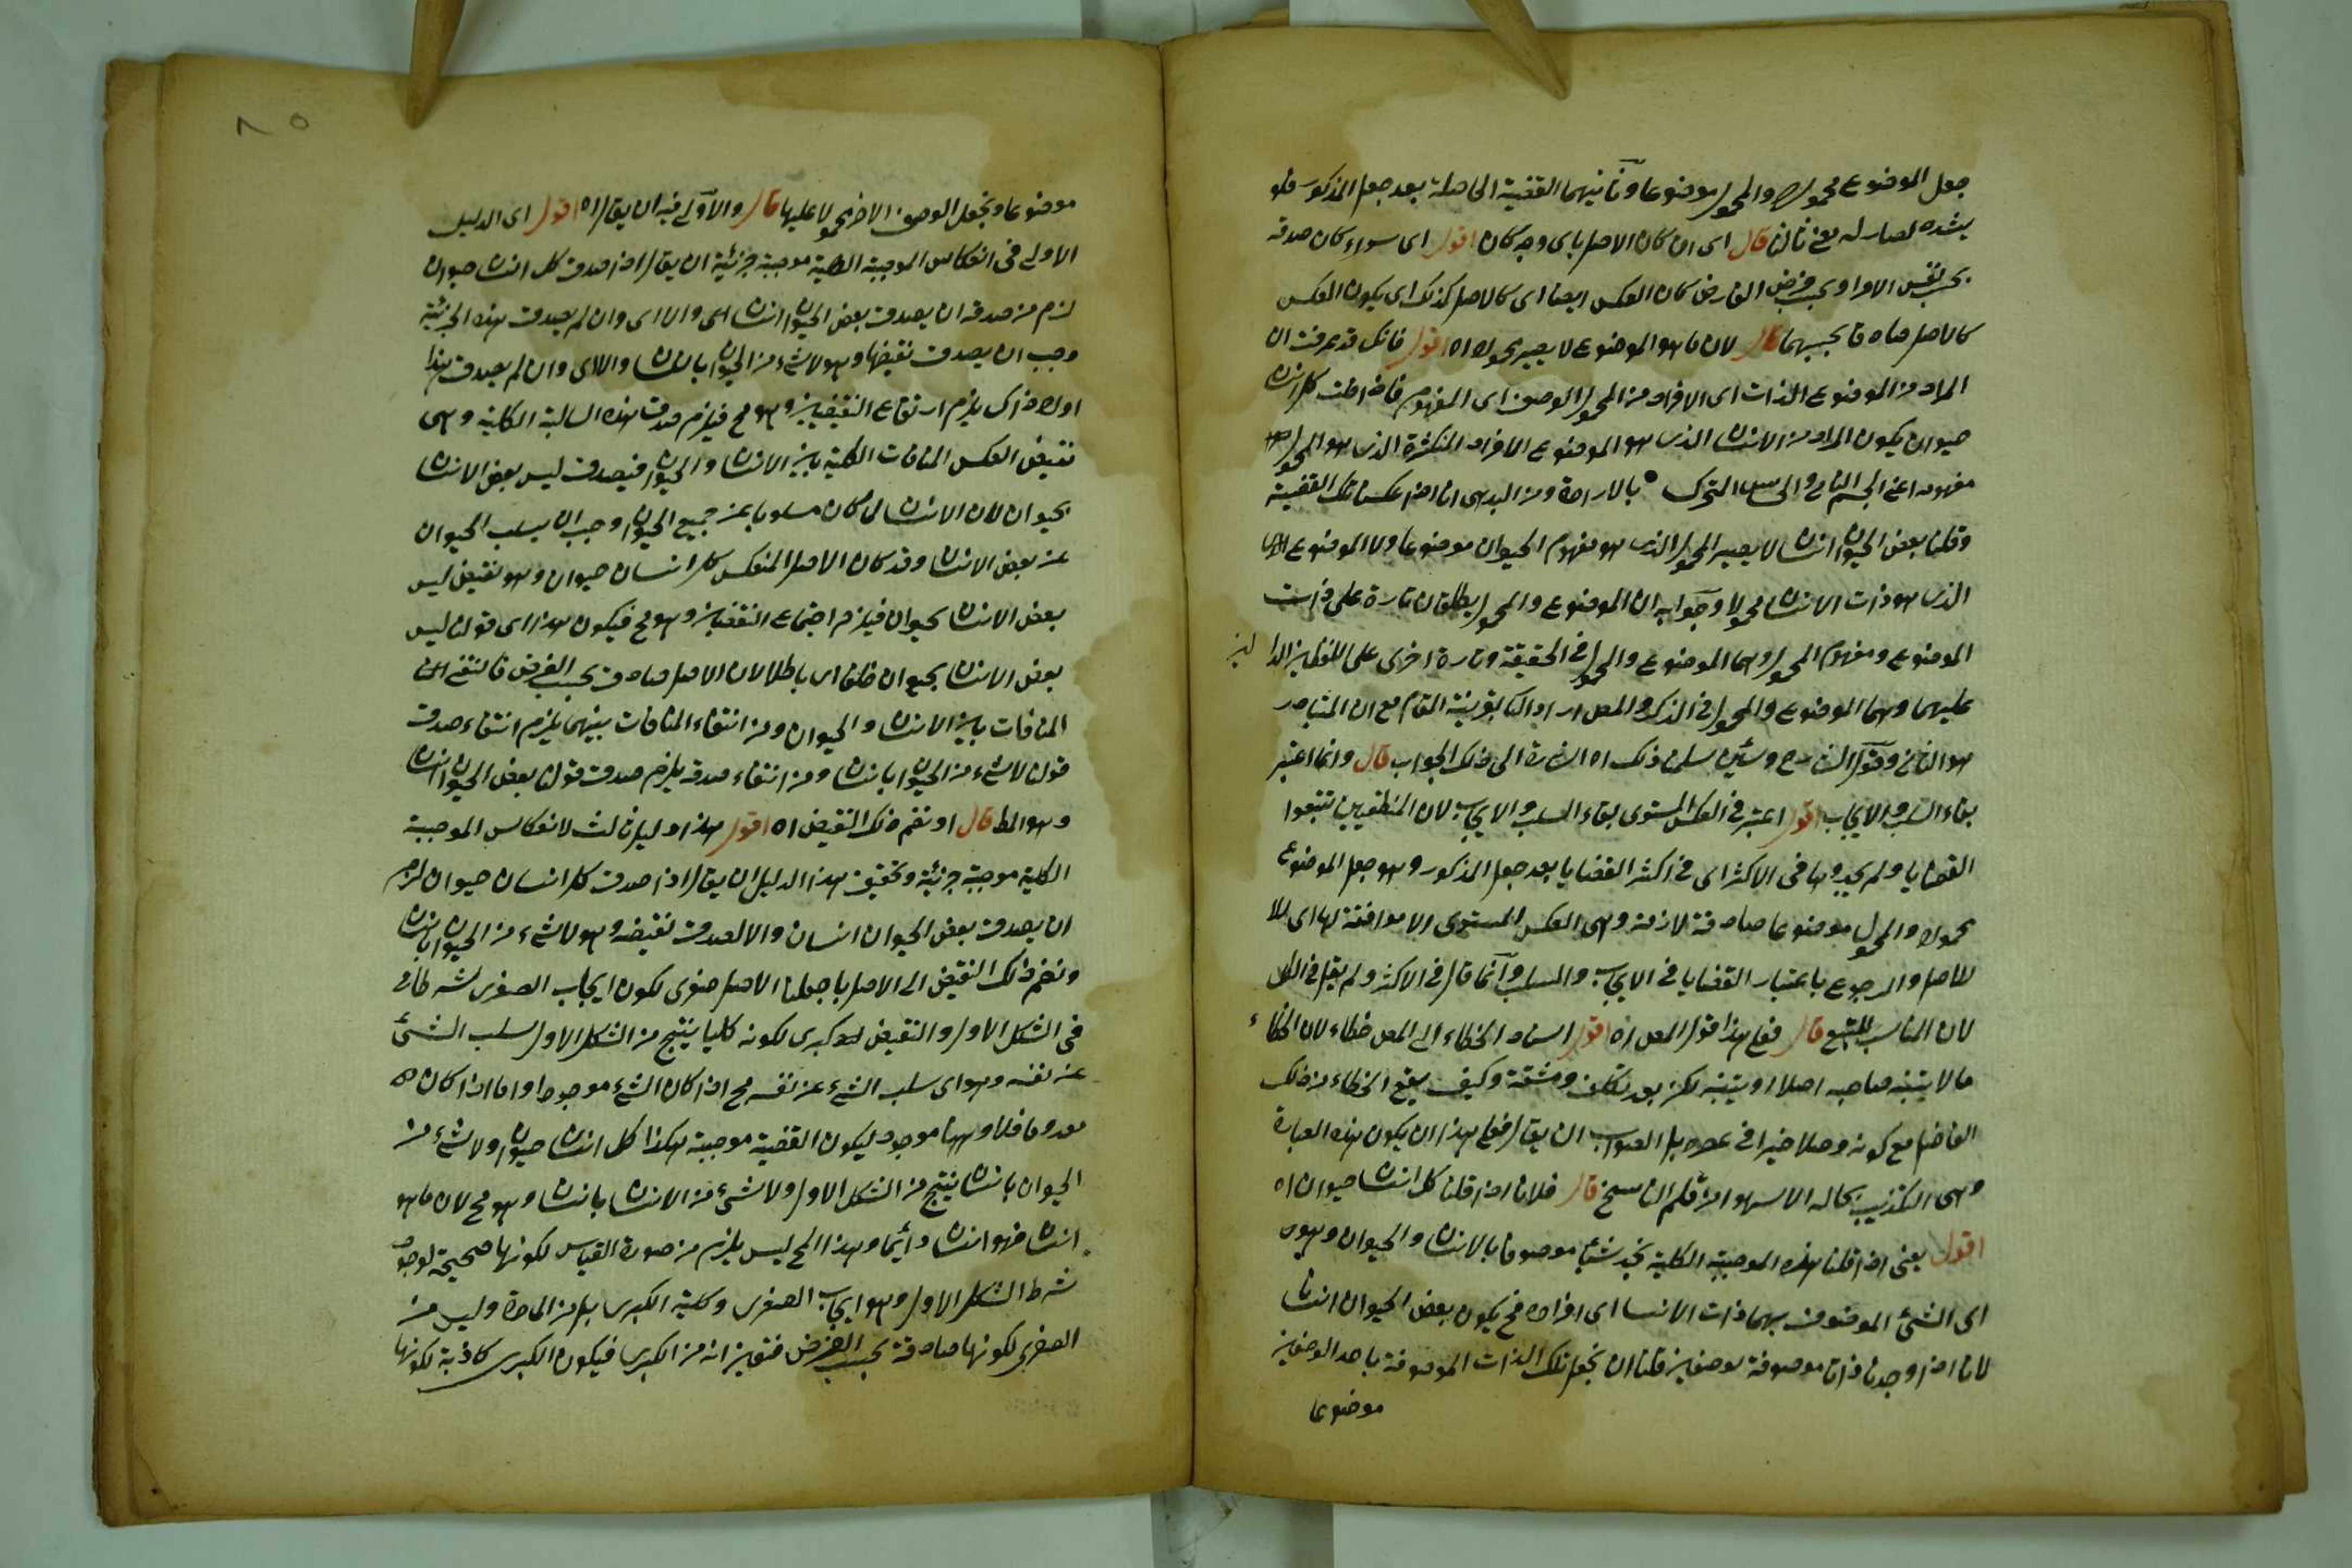 جعل الموضوع محمولا والمحمول موضوعا وثانيهما القضية الحاصلة بعد جعل المذكور فلو
لصار له معنى ثالثا قال اى ان كان الاصل باى وجه كان اقول اى سواء كان صدقه
بحسب نفس الامر او بحسب فرض الفارض كان العكس ايضا اى كالاصل كذلك اى يكون العكس
كالاصل صادقا بحسبهما قال لان ما هو الموضوع لا يصير محمولا اه اقول فانك قد عرفت ان
المراد من الموضوع الذات اى الافراد من المحمول الوصف اى المفهوم فاذا قلت كل انسان
حيوان يكون المراد من الانسان الذى هو الموضوع الافراد المتكثرة الذى هو المحمول
مفهومه اعنى الجسم النامى والحساس المتحرك بالارادة ومن البديهى انا اذا عكسنا تلك القضية
وقلنا بعض الحيوان انسان لا يصير المحمول الذى هو مفهوم الحيوان موضوعا ولا الموضوع
الذى هو ذات الانسان محمولا وجوابه ان الموضوع والمحمول يطلقان تارة على ذات
الموضوع ومفهوم المحمول وهما الموضوع والمحمول فى الحقيقة وتارة اخرى على اللفظين الدالين
عليهما وهما الموضوع والمحمول فى الذكر والمص اراد الثانى بقرينة المقام مع ان المتبادر
هو الثانى وقول الشارح ولئن سلمنا ذلك اه اشارة الى ذلك الجواب قال وانما اعتبر
بقاء السلب والايجاب اقول اعتبر فى العكس المستوى بقاء السلب والايجاب لان المنطقيين تتبعوا
القضايا ولم يجدوها فى الاكثر اى فى اكثر القضايا بعد جعل المذكور وهو جعل الموضوع
محمولا والمحمول موضوعا صادقة لازمة وهى العكس المستوى الا موافقة لها اى للا
للاصل والرجوع باعتبار القضايا فى الايجاب والسلب وانما قال فى الاكثر ولم يقل فى الكل
لان المناسب للتتبع قال فعلى هذا قول المص اه اقول اسناد الخطاء الى المص خطاء لان الخطاء
ما لا يتنبه صاحبه اصلا او يتنبه لكن بعد تكلف ومشقة وكيف يقع الخطاء من ذلك
الفاضل مع كونه بل الصواب ان يقال فعلى هذا ان يكون هذه العبارة
وهى التكذيب بحاله الا سهوا من قلم الناسخ قال فلانا اذا قلنا كل انسان حيوان اه
اقول يعنى اذا قلنا هذه الموجبة الكلية نجد شيئا موصوفا بالانسان والحيوان وهو
اى الشئ الموصوف بهما ذات الانسان اى افراده فح يكون بعض الحيوان انسانا
لانا اذا وجدنا ذاتا موصوفة بوصفين فلنا ان نجعل تلك الذات الموصوفة باحد الوصفين
موضوعا
٨٥
موضوعا ونجعل الوصف الاخر محمولا عليها قال والاولى فيه ان يقال اه اقول اى الدليل
الاولى فى انعكاس الموجبة الكلية موجبة جزئية ان يقال اذا صدق كل انسان حيوان
لزم من صدقه ان يصدق بعض الحيوان انسان اى والا اى وان لم يصدق هذه الجزئية
وجب ان يصدق نقيضها وهو لا شئ من الحيوان بانسان والا اى وان لم يصدق هذا
اولا ذاك يلزم ارتفاع النقيضين وهو مح فيلزم صدق هذه السالبة الكلية وهى
نقيض العكس المنافات الكلية بين الانسان والحيوان فيصدق ليس بعض الانسان
بحيوان لان الانسان لما كان مسلوبا عن جميع الحيوان وجب ان يسلب الحيوان
عن بعض الانسان وقد كان الاصل المنعكس كل انسان حيوان وهو نقيض ليس
بعض الانسان بحيوان فيلزم اجتماع النقيضين وهو مح فيكون هذا اى قولنا ليس
بعض الانسان بحيوان خلفا اى باطلا لان الاصل صادق بحسب الفرض فانتفى
المنافات بين الانسان والحيوان ومن انتفاء المنافات بينهما يلزم انتفاء صدق
قولنا لا شئ من الحيوان بانسان ومن انتفاء صدقه يلزم صدق قولنا بعض الحيوان انسان
وهو المط قال او نضم ذلك النقيض اه اقول هذا دليل ثالث لانعكاس الموجبة
الكلية موجبة جزئية وتحقيق هذا الدليل ان يقال اذا صدق كل انسان حيوان لزم
ان يصدق بعض الحيوان انسان والا لصدق نقيضه وهو لا شئ من الحيوان بانسان
ونضم ذلك النقيض الى الاصل بان جعلنا الاصل صغرى لكون ايجاب الصغرى شرطا فى
فى الشكل الاول والنقيض كبرى لكونه كليا ينتج من الشكل الاول سلب الشئ
عن نفسه وهو اى سلب الشئ عن نفسه مح اذا كان الشئ موجودا واما اذا كان
معدوما فلا وههنا موجود ليكون القضية موجبة هكذا كل انسان حيوان ولا شئ من
الحيوان بانسان ينتج من الشكل الاول ولا شئ من الانسان بانسان وهو مح لان ما هو
انسان فهو انسان دائما وهذا المح ليس يلزم من صورة القياس لكونها صحيحة لوجود
شرط الشكل الاول وهو ايجاب الصغرى وكلية الكبرى بل من المادة وليس من
الصغرى لكونها صادقة بحسب الفرض فتعين انه من الكبرى فيكون الكبرى كاذبة لكونها